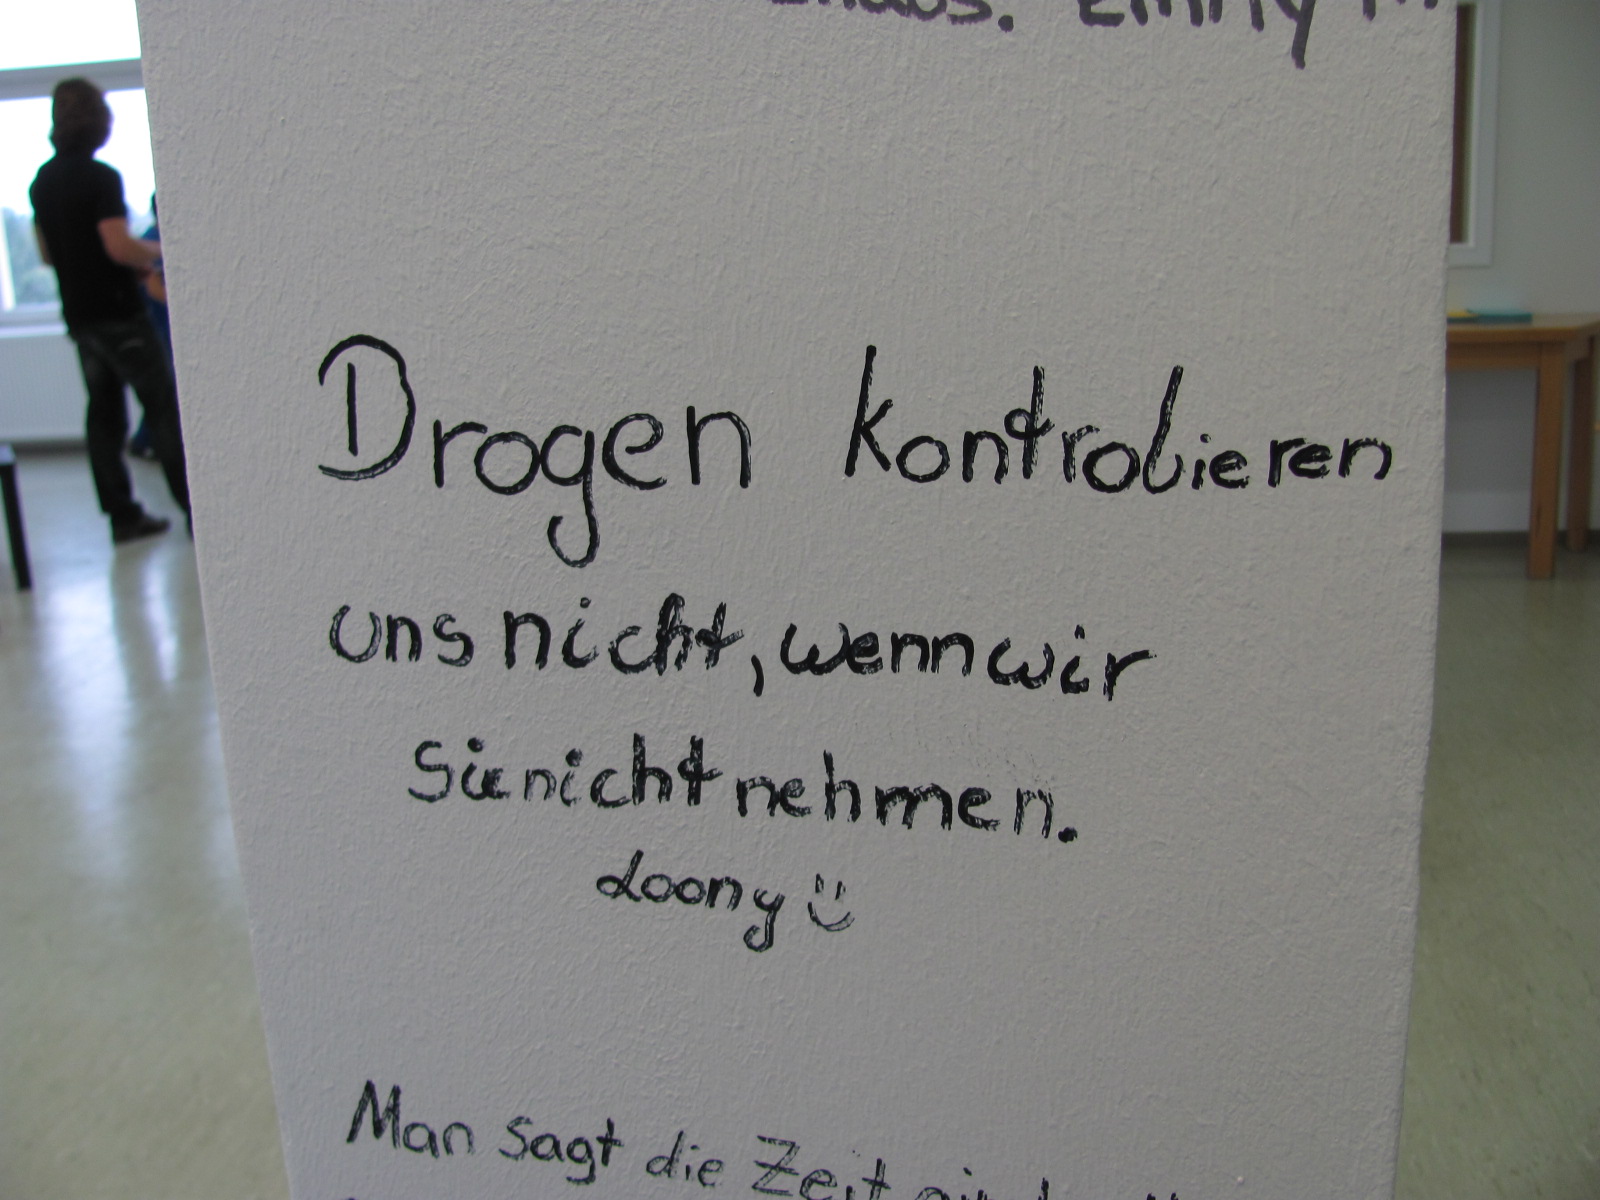 Emmy
Drogen kontrolieren
uns nicht, wenn wir
sie nicht nehmen.
Loony :)
Man sagt die Zeit